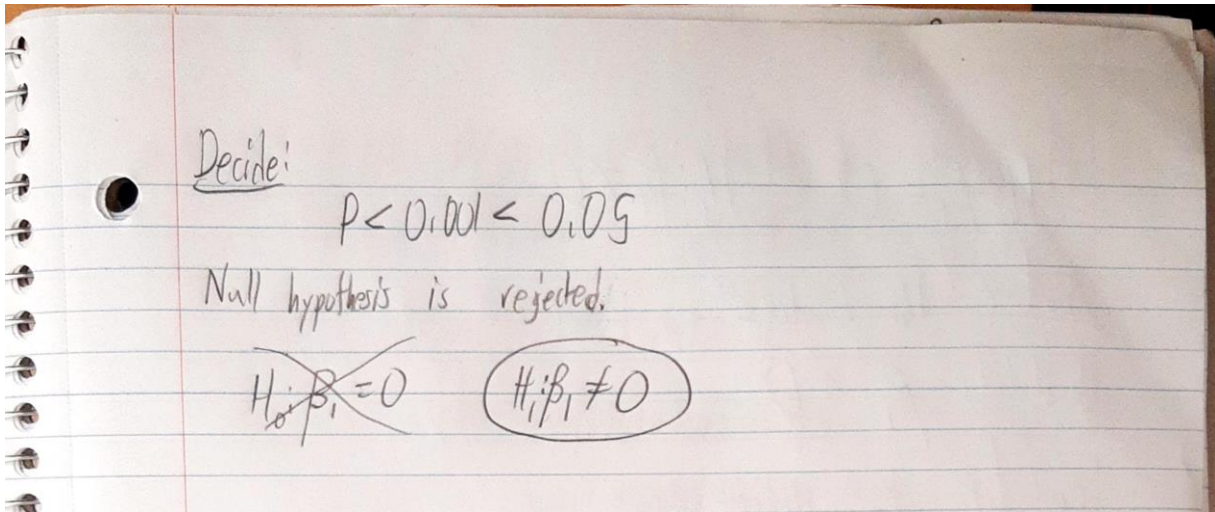 Decide:
P < 0.001 < 0.05
Null hypothesis is rejected.
H₀: β₁ = 0 H₁: β₁ ≠ 0